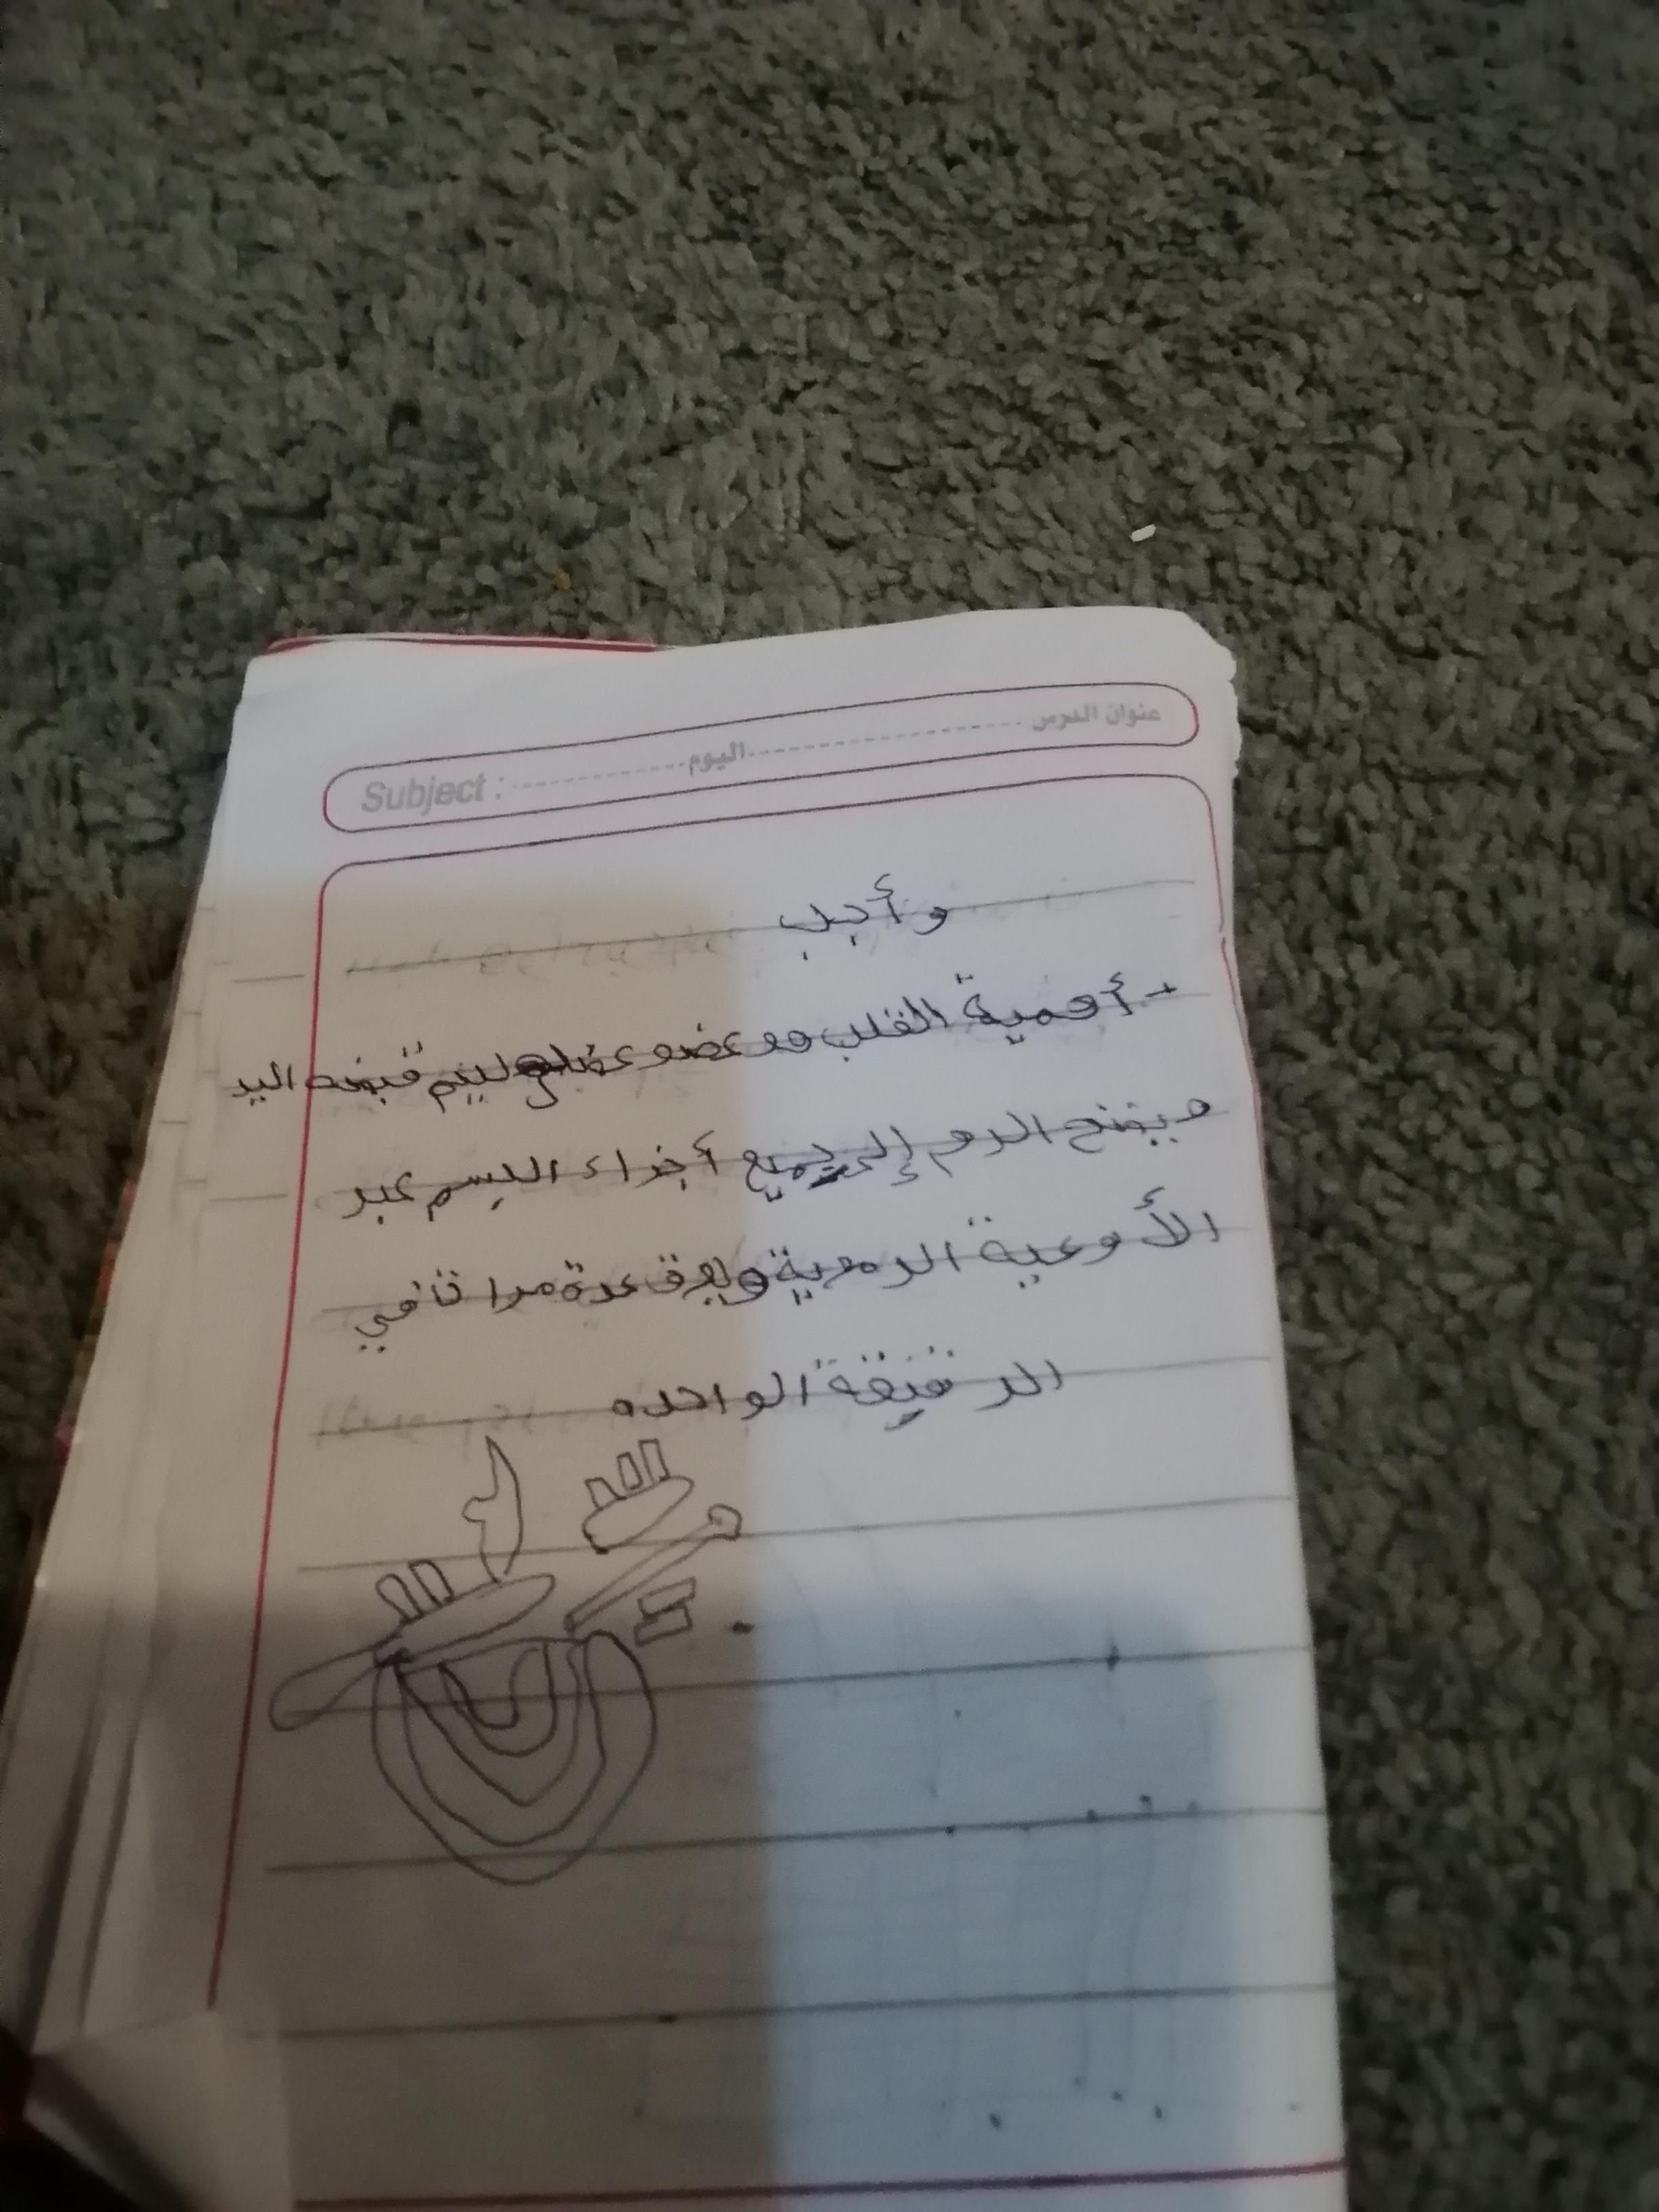 عنوان الدرس اليوم Subject :
وأجب
- أهمية القلب هو عضو عضلي قبضه اليد
يضخ الدم إلى جميع أجزاء الجسم عبر
الأوعية الدموية عدة مرات في
الدقيقة الواحده